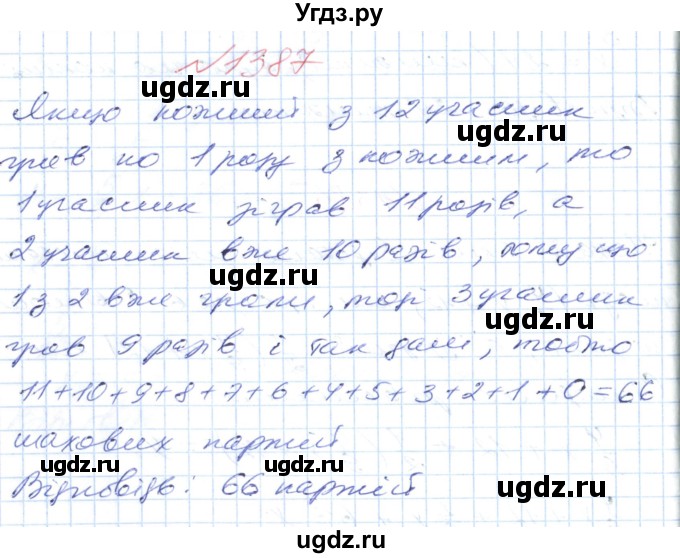 Угдз.ру
№1387
Якщо кожний з 12 учасник
грав по 1 разу з кожним, то
1 учасник зіграв 11 разів, а
2 учасник вже 10 разів, тому що
1 з 2 вже грали, тоді 3 учасник
грав 9 разів і так далі, тобто
11+10+9+8+7+6+4+5+3+2+1+0=66
шахових партій
Відповідь: 66 партій
ugdz.ru
ugdz.ru
ugdz.ru
ugdz.ru
ugdz.ru
ugdz.ru
ugdz.ru
ugdz.ru
ugdz.ru
ugdz.ru
ugdz.ru
ugdz.ru